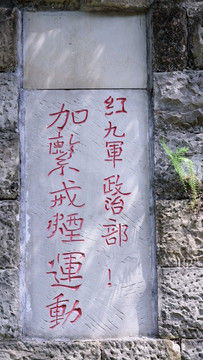 红九軍政治部！
加繫戒煙運動